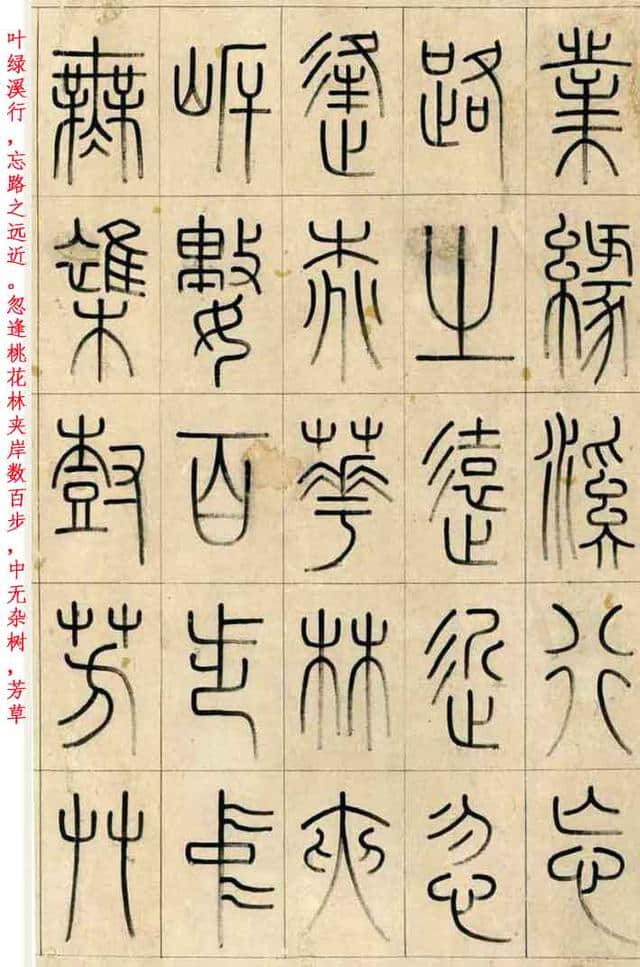 業緣溪行忘
路之遠近忽
逢桃華林夾
岸數百步中
無雜樹芳艸
叶绿溪行，忘路之远近。忽逢桃花林夹岸数百步，中无杂树，芳草